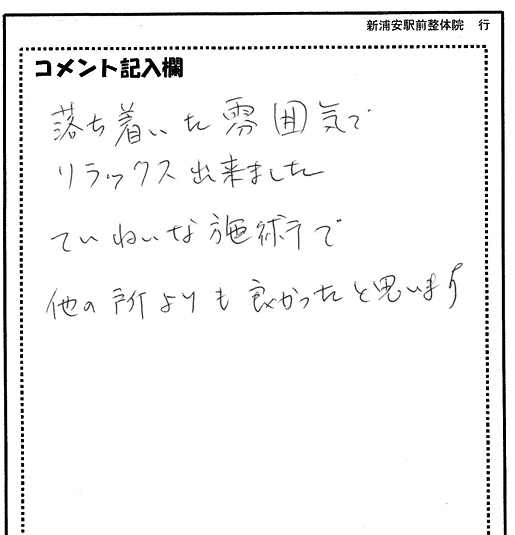 新浦安駅前整体院 行
コメント記入欄
落ち着いた雰囲気で
リラックス出来ました
ていねいな施術で
他の所よりも良かったと思います